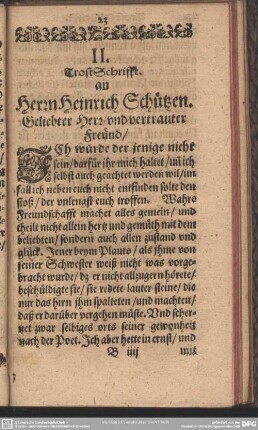 23
II.
TrostSchrifft.
an
Herꝛn Heinrich Schützen.
Geliebter Herꝛ vnd vertrauter
Freünd/
ICh würde der jenige nicht
sein/ darfür ihr mich haltet/ uñ ich
selbst auch geachtet werden wil/ im
fall ich neben euch nicht entfinden solte den
stoß/ der vnlengst euch troffen. Wahre
Freundschafft machet alles gemein/ und
theilt nicht allein hertz und gemüth mit dem
beliebten/ sondern auch allen zustand vnd
glück. Jener beym Plauto/ als ihme von
seiner Schwester weiß nicht was vorge-
bracht wurde/ dz er nicht allzugern hörete/
beschüldigte sie/ sie redete lauter steine/ die
mir das hirn ihm spalteten/ und machten/
daß er darüber vergehen müste. Vnd scher-
tzet zwar selbiges orts seiner gewonheit
nach der Poet. Ich aber hette in ernst/ und
B iiij